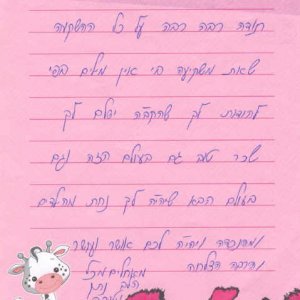 תודה רבה רבה על כל ההשקעה
שאת משקיעה בי אין מילים בפי
להודות לך שהקב״ה ישלם לך
שכר טוב גם בעולם הזה וגם
בעולם הבא שיהיה לך נחת מהילדים
ומהנכדה ויהיה לכם אושר ועושר
והרבה הצלחה מאחלים מכל
הלב נתן